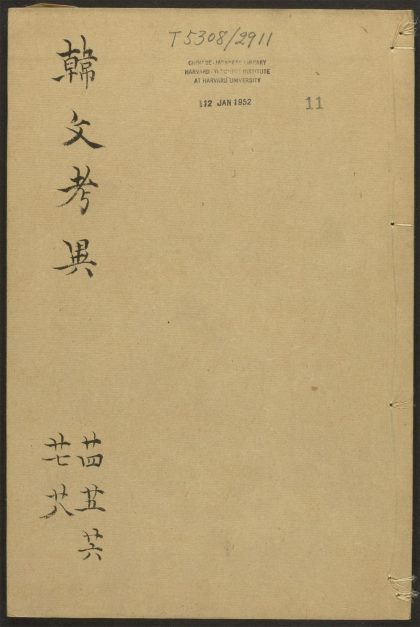 T5308/2911
CHINESE-JAPANESE LIBRARY
HARVARD-YENCHING INSTITUTE
AT HARVARD UNIVERSITY
12 JAN 1952
11
韓文考異
廿四 廿五 廿六
廿七 廿八